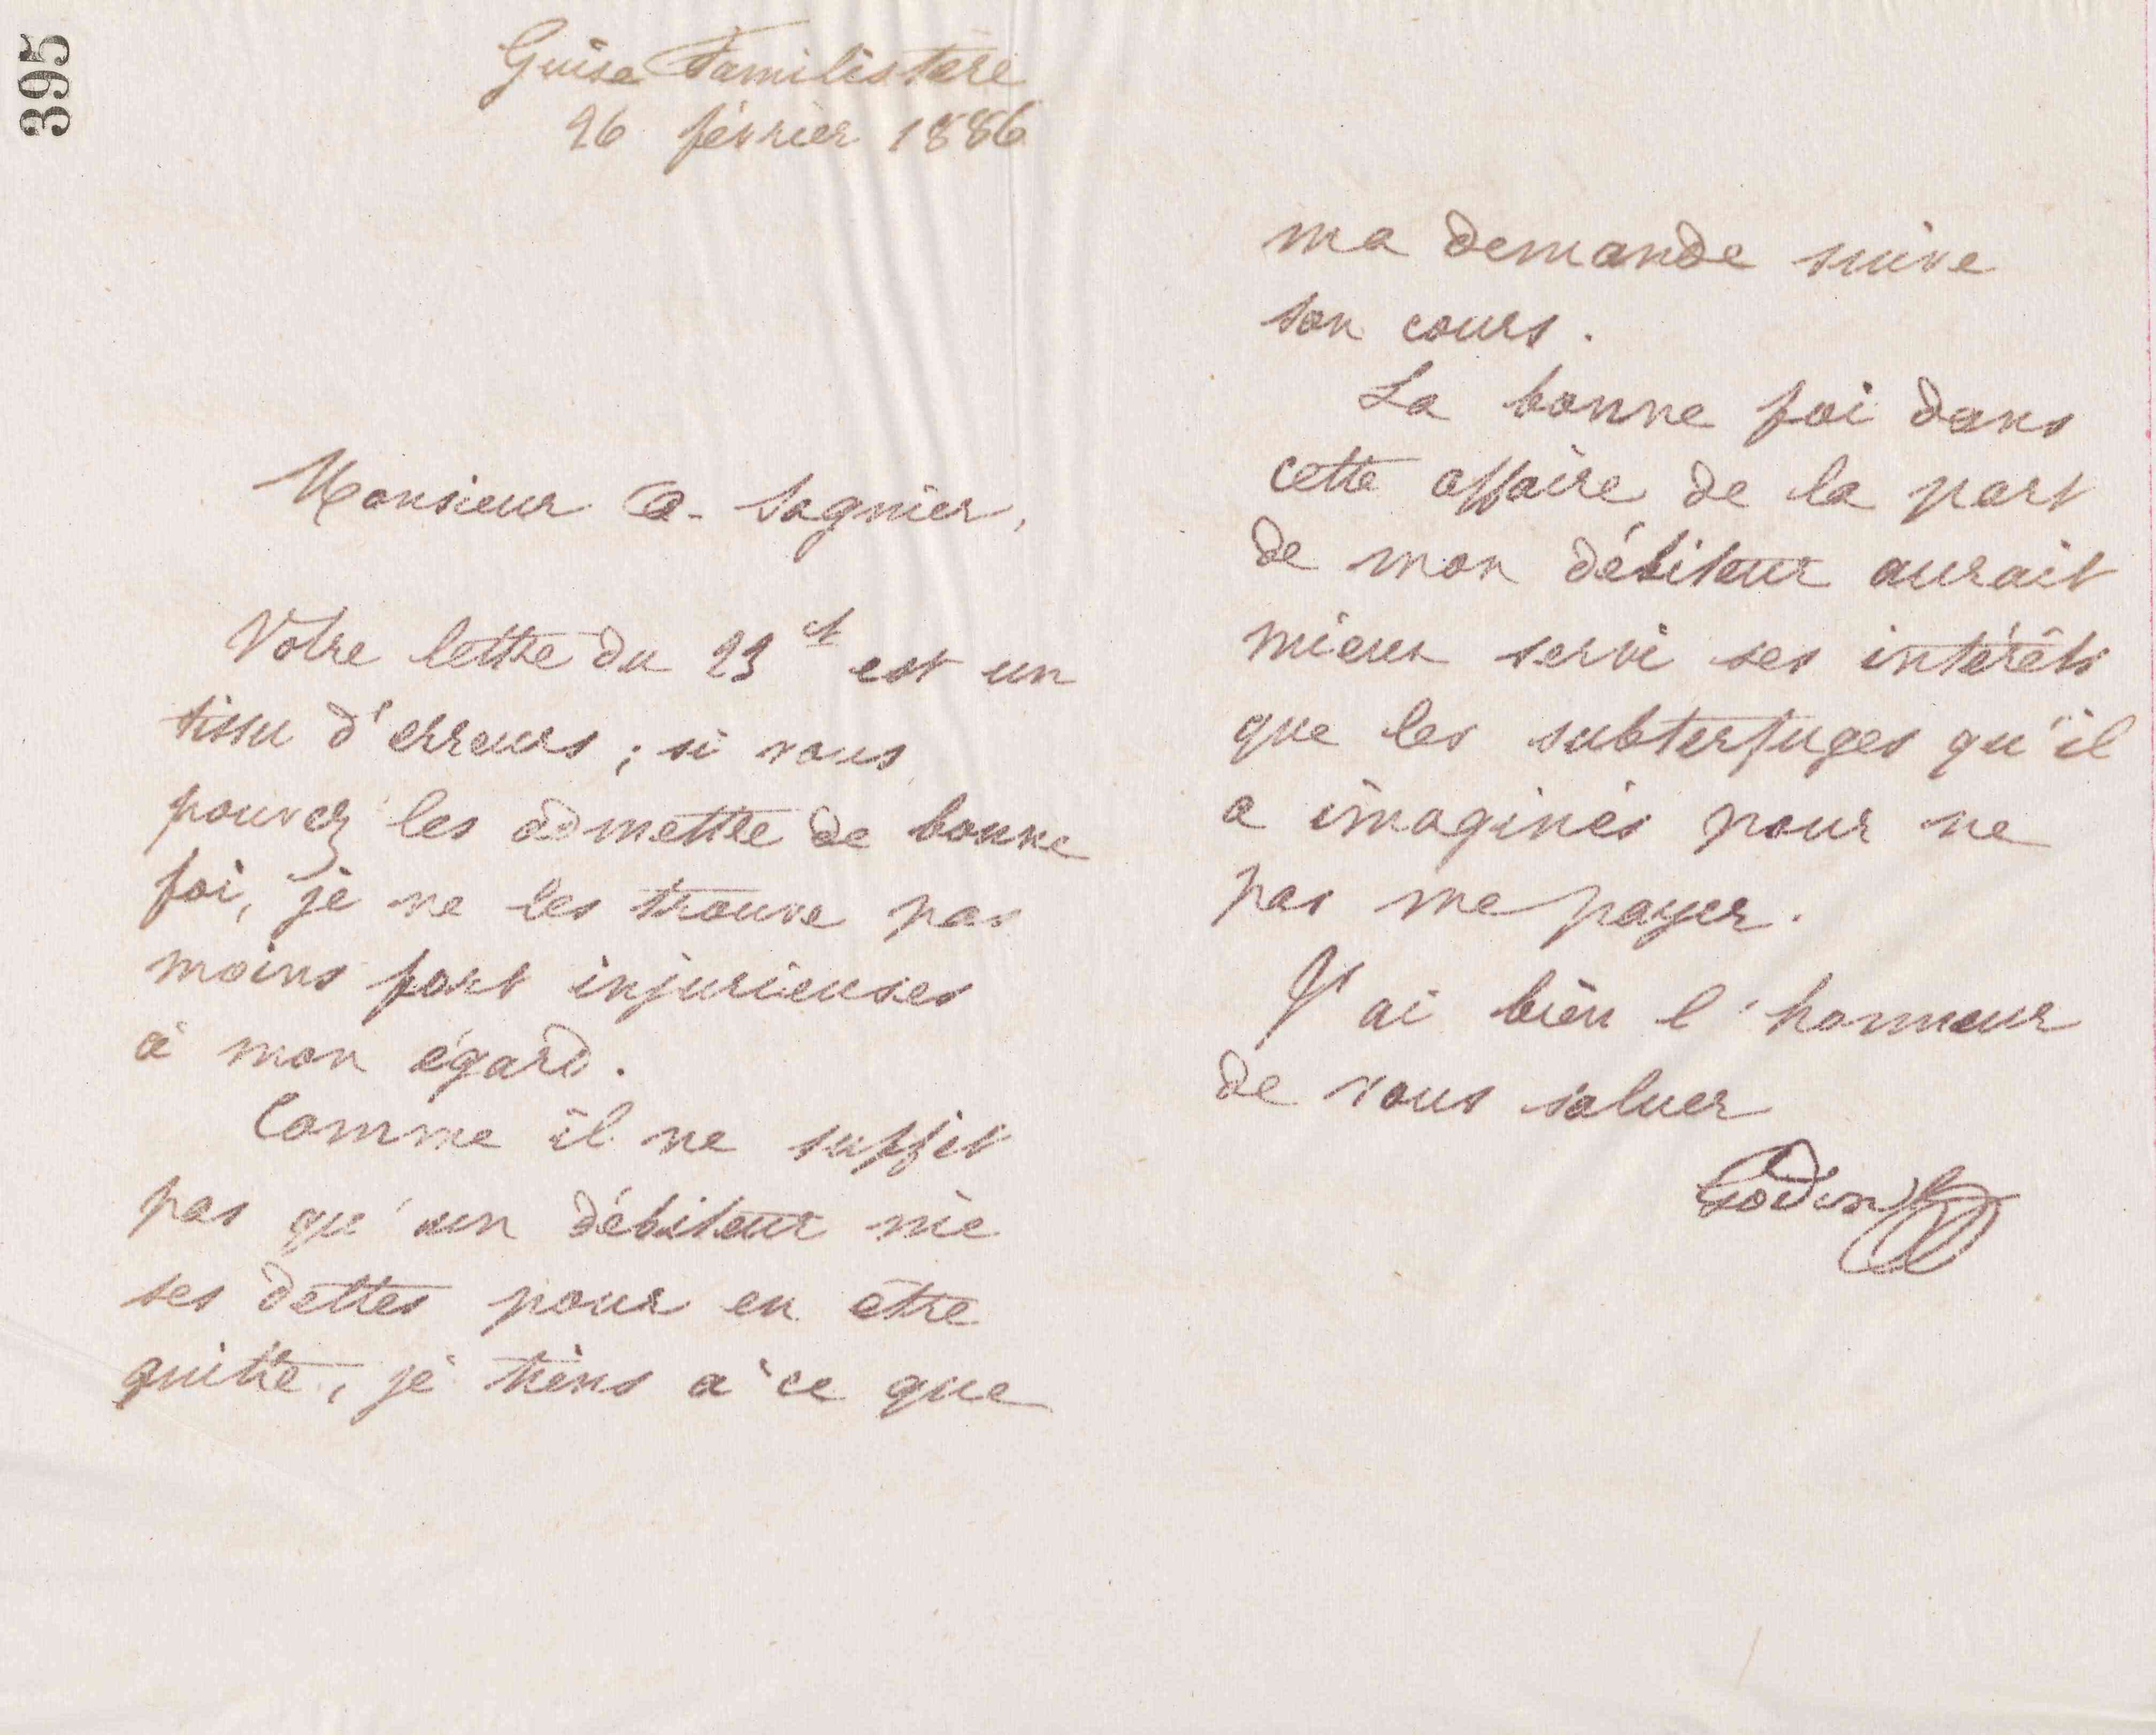 395
Guise Familistère
26 février 1886
Monsieur A. Sagnier,
Votre lettre du 23 ct est un
tissu d'erreurs ; si vous
pouvez les admettre de bonne
foi, je ne les trouve pas
moins fort injurieuses
à mon égard.
Comme il ne suffit
pas qu'un débiteur nie
ses dettes pour en être
quitte, je tiens à ce que
ma demande suive
son cours.
La bonne foi dans
cette affaire de la part
de mon débiteur aurait
mieux servi ses intérêts
que les subterfuges qu'il
a imaginés pour ne
pas me payer.
J'ai bien l'honneur
de vous saluer
Godin